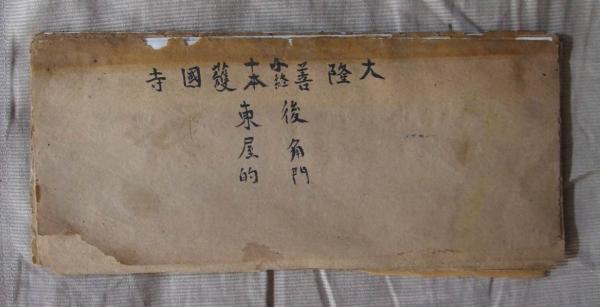 大隆善護國寺
後角門
十本
東屋的